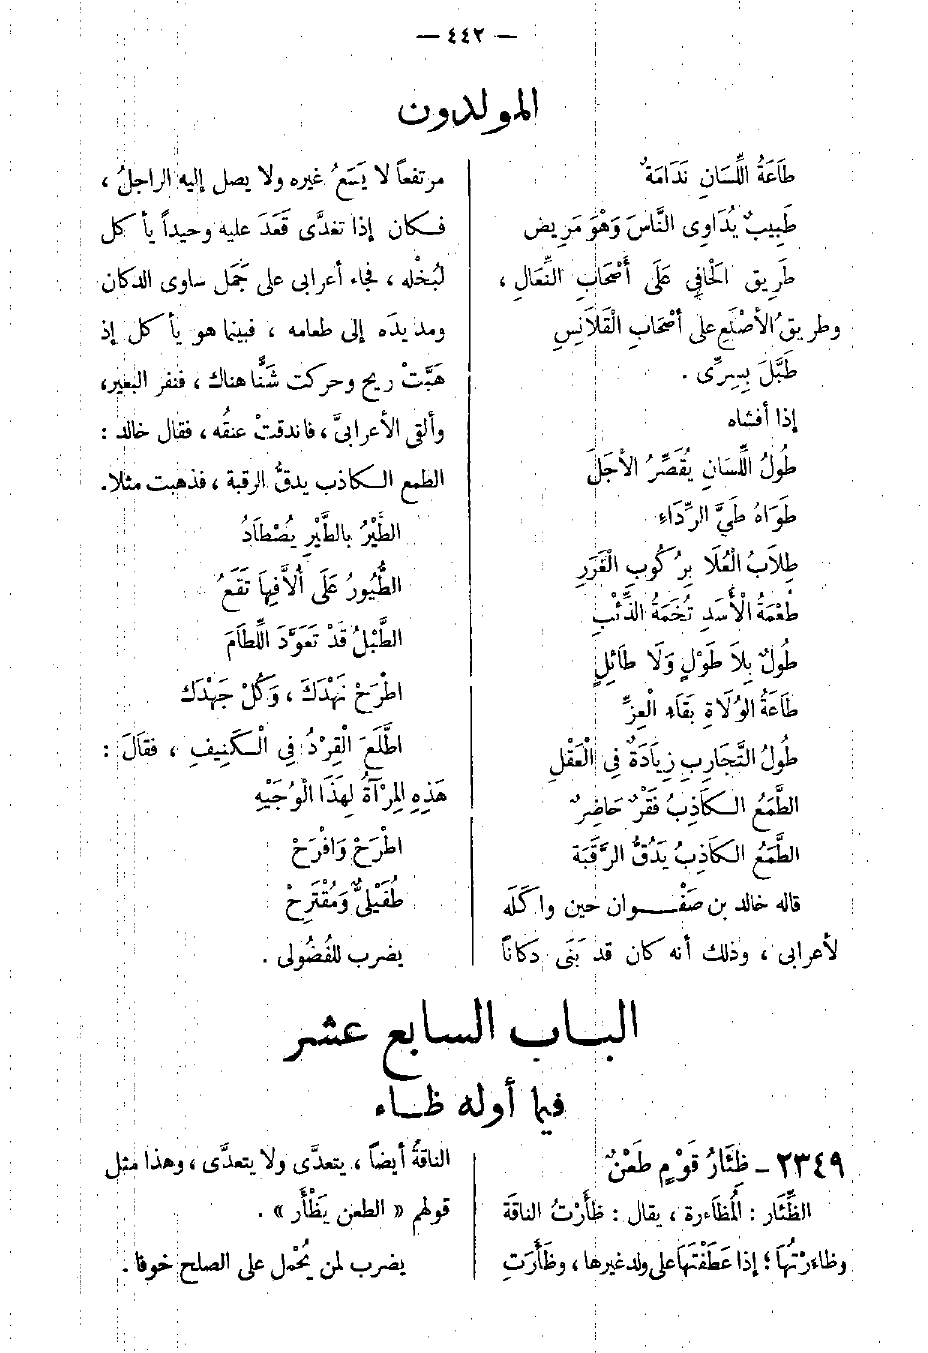 — ٤٤٢ —
المولدون
طَاعَةُ اللِّسَانِ نَدَامَةٌ
طَبِيبٌ يُدَاوِى النَّاسَ وَهْوَ مَرِيض
طَرِيق الْحَافِي عَلَى أَصْحَابِ النِّعَالِ ،
وطريقُ الأصْلَعِ على أصْحَابِ الْقَلَانِسِ
طَبَّلَ بِسِرِّى .
إذا أفشاه
طُولُ اللِّسَانِ يُقَصِّرُ الأجَلَ
طَوَاهُ طَيَّ الرِّدَاءِ
طِلَابُ الْعُلَا بِرُكُوبِ الْغَرَرِ
طُعْمَةُ الْأَسَدِ تُخَمَةُ الذِّئْبِ
طُولٌ بِلاَ طَوْلٍ وَلَا طَائِلٍ
طَاعَةُ الوُلَاةِ بَقَاءِ الْعِزِّ
طُولُ التَّجَارِبِ زِيَادَةٌ فِى الْعَقْلِ
الطَّمَعُ الكَاذِبُ فَقْرٌ حَاضِرٌ
الطَّمَعُ الكَاذِبُ يَدُقُّ الرَّقَبَةَ
قاله خالد بن صَفْوان حين واكَلَه
لأعرابى ، وذلك أنه كان قد بَنَى دكاناً
مرتفعاً لا يَسَعُ غيره ولا يصل إليه الراجلُ ،
فكان إذا تغدَّى قَعَدَ عليه وحيداً يأكل
لبُخْله ، فجاء أعرابى على جَمَل ساوى الدكان
ومد يدَه إلى طعامه ، فبينما هو يأكل إذ
هَبَّتْ ريح وحركت شَنًّا هناك ، فنفر البعير،
وألقى الأعرابىَّ ، فاندقتْ عنقُه ، فقال خالد :
الطمع الكاذب يدقُّ الرقبة ، فذهبت مثلا.
الطَّيْرُ بالطَّيْرِ يُصْطَادُ
الطُّيُورُ عَلَى أُلاَّفِهَا تَقَعُ
الطَّبْلُ قَدْ تَعَوَّدَ اللِّطَامَ
اطْرَحْ نَهْدَكَ ، وَكُلْ جَهْدَكَ
اطَّلَعَ الْقِرْدُ فِى الْكَنِيفِ ، فقَالَ :
هَذِهِ الِمرْآةُ لِهَذَا الْوُجَيْهِ
اطْرَحْ وَافْرَحْ
طُفَيْلِىٌّ وَمُقْتَرِحْ
يضرب للفُضُولى .
الباب السابع عشر
فيما أوله ظاء
٢٣٤٩ – ظِئَارُ قَوْمٍ طَعْنٌ
الظِّئَار : الُمظَاءرة ، يقال : ظأَرْتُ الناقَة
وظاءَرْتُهَا ؛ إذا عَطَفْتَهَا على ولد غيرها ، وظَأَرَتِ
الناقةُ أيضاً ، يتعدَّى ولا يتعدَّى ، وهذا مثل
قولهم « الطعن يَظْأَر » .
يضرب لمن يُحْمل على الصلح خوفا .